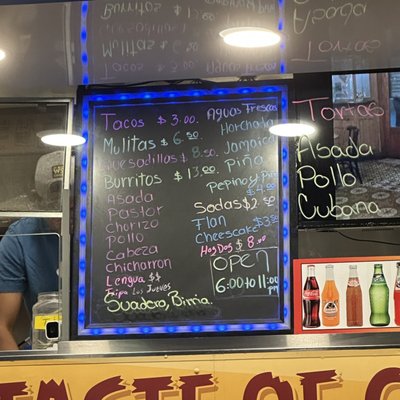 Tacos $3.00
Mulitas $6.50
Quesadillas $8.50
Burritos $13.00
Asada
Pastor
Chorizo
Pollo
Cabeza
Chicharron
Lengua $$
Tripa Los Jueves
Suadero, Birria.
Aguas Frescas
Horchata
Jamaica
Piña
Pepino y
$4.00
Sodas $2.50
Flan
Cheescake $3.50
HogDos $8.00
Open
6:00 to 11:00
pm
Tortas
Asada
Pollo
Cubana
TASTE OF